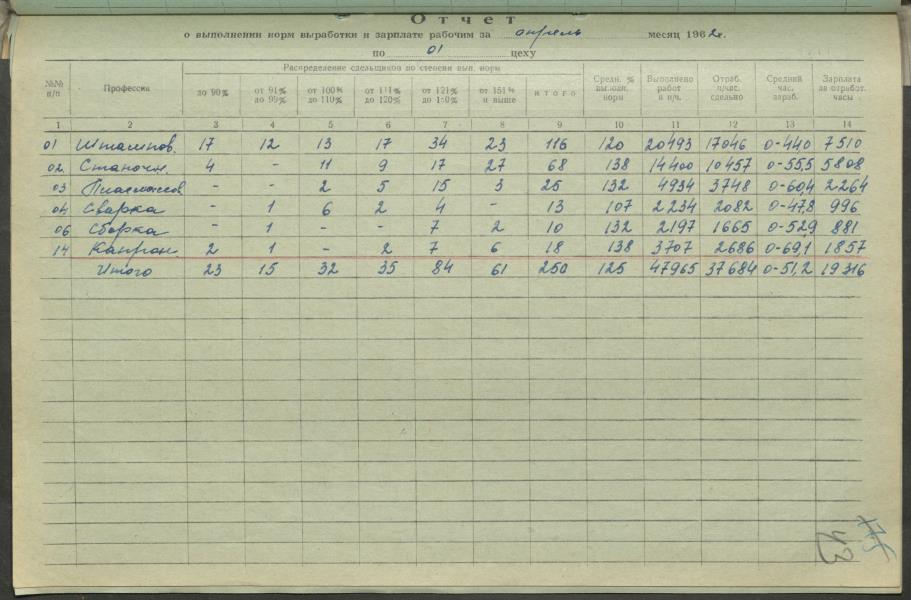 Отчет
о выполнении норм выработки и зарплате рабочим за апрель месяц 1962г.
по 01 цеху
№№ п/п Профессия Распределение сдельщиков по степени вып. норм Средн. % выполн. норм Выполнено работ в н/ч. Отраб. ч/час. сдельно Средний час. зараб. Зарплата за отработ. часы
до 90% от 91% до 99% от 100% до 110% от 111% до 120% от 121% до 150% от 151% и выше итого
1 2 3 4 5 6 7 8 9 10 11 12 13 14
01 Штампов. 17 12 13 17 34 23 116 120 20493 17046 0-440 7510
02 Станочн. 4 - 11 9 17 27 68 138 14400 10457 0-55,5 5808
03 Пластмассов - - 2 5 15 3 25 132 4934 3748 0-60,4 2264
04 Сварка - 1 6 2 4 - 13 107 2234 2082 0-47,8 996
06 Сборка - 1 - - 7 2 10 132 2197 1665 0-529 881
14 Капрон. 2 1 - 2 7 6 18 138 3707 2686 0-69,1 1857
Итого 23 15 32 35 84 61 250 125 47965 37684 0-51,2 19316
43